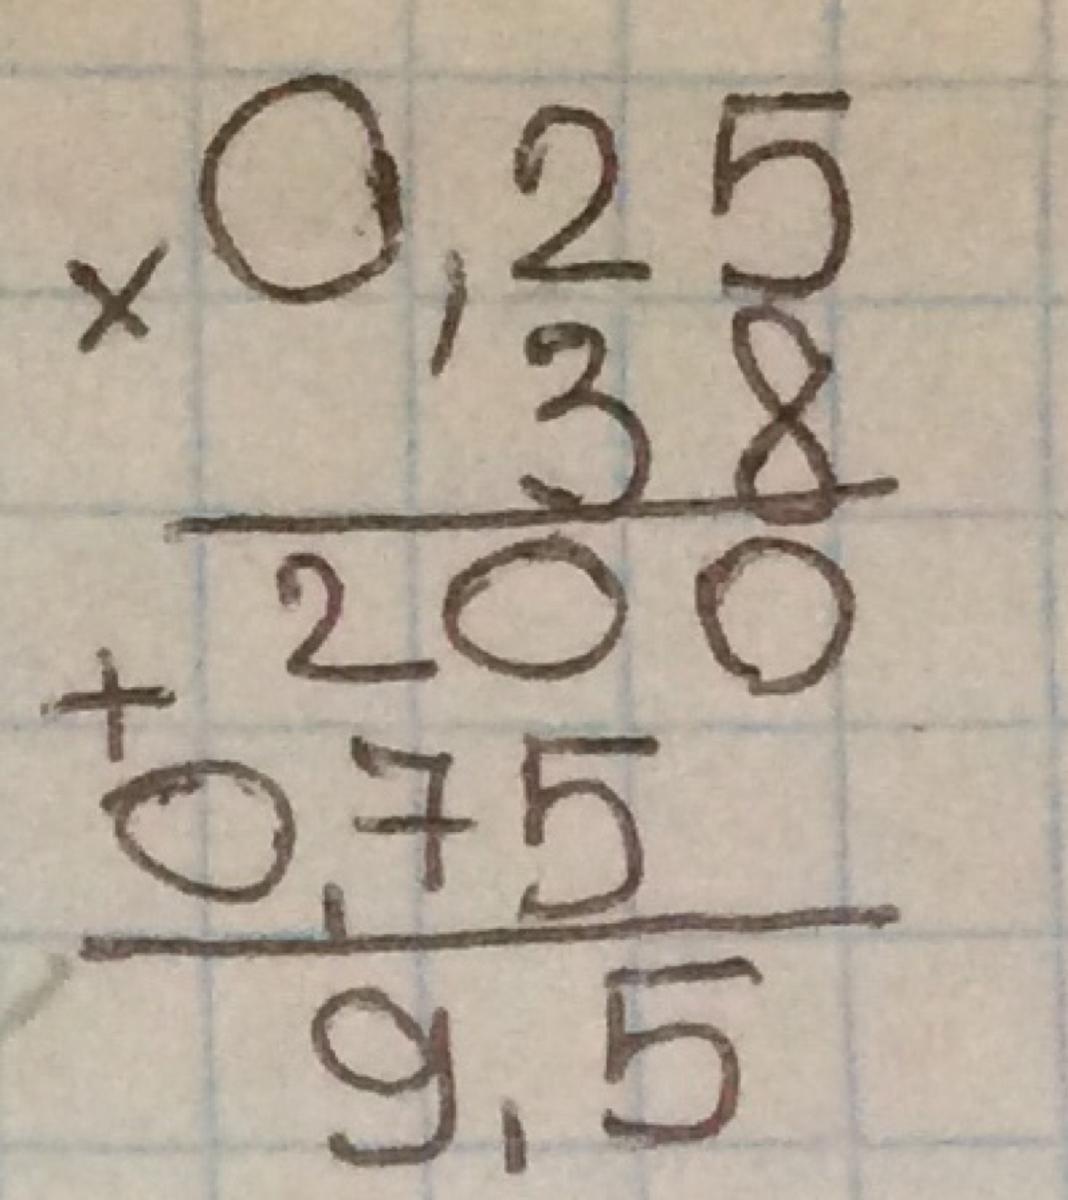 × 0,25
38
200
+
0,75
9,5